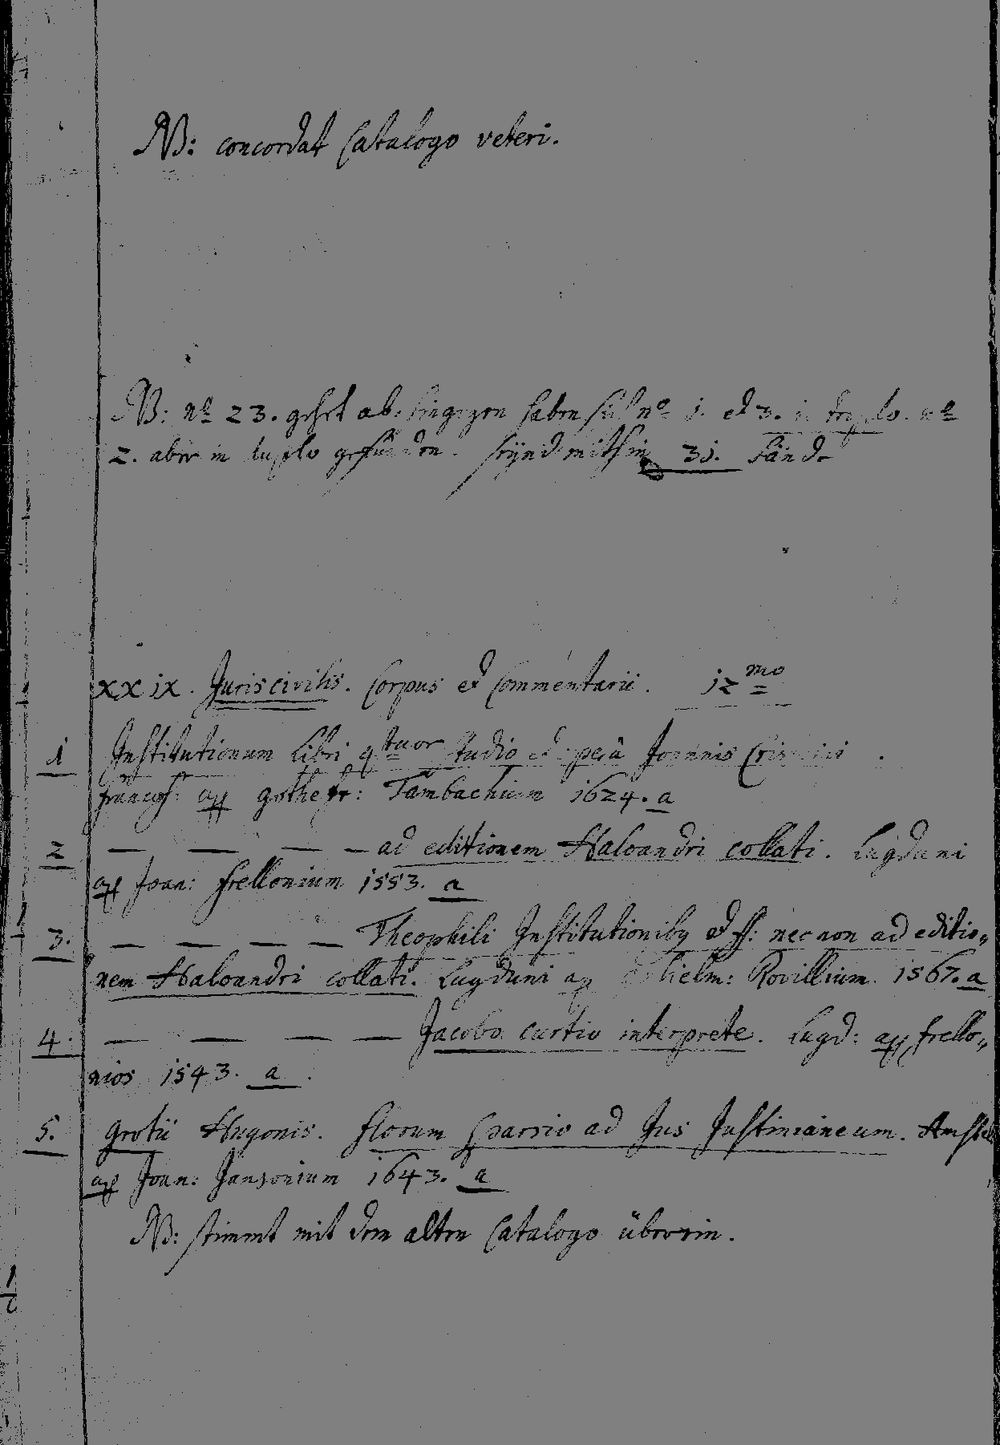 NB: concordat Catalogo veteri.
NB: no 23. gehet ab. hingegen haben sich no 1. et 3. in no
2. aber in duplo gefunden. seynd mithin 31. bänd.
XXIX. Juris civilis. Corpus et Commentarii. 12mo
1 Institutionum libri qtuor studio et opera Joannis
francof: ap gothofr: Tambachium 1624. a
2 — — — — ad editionem Haloandri collati. Lugduni
ap Joan: frellonium 1553. a
3. — — — — Theophili Institutionibq et ff: nec non ad editio„
nem Haloandri collati. Lugduni ap Gulielm: Rovillium. 1567. a
4. — — — — Jacobo curtio interprete. Lugd: ap frello„
nios 1543. a.
5. Grotii Hugonis. florum sparsio ad Jus Justinianeum. Amstel
ap Joan: Jansonium 1643. a
NB: stimmt mit dem alten Catalogo überein.